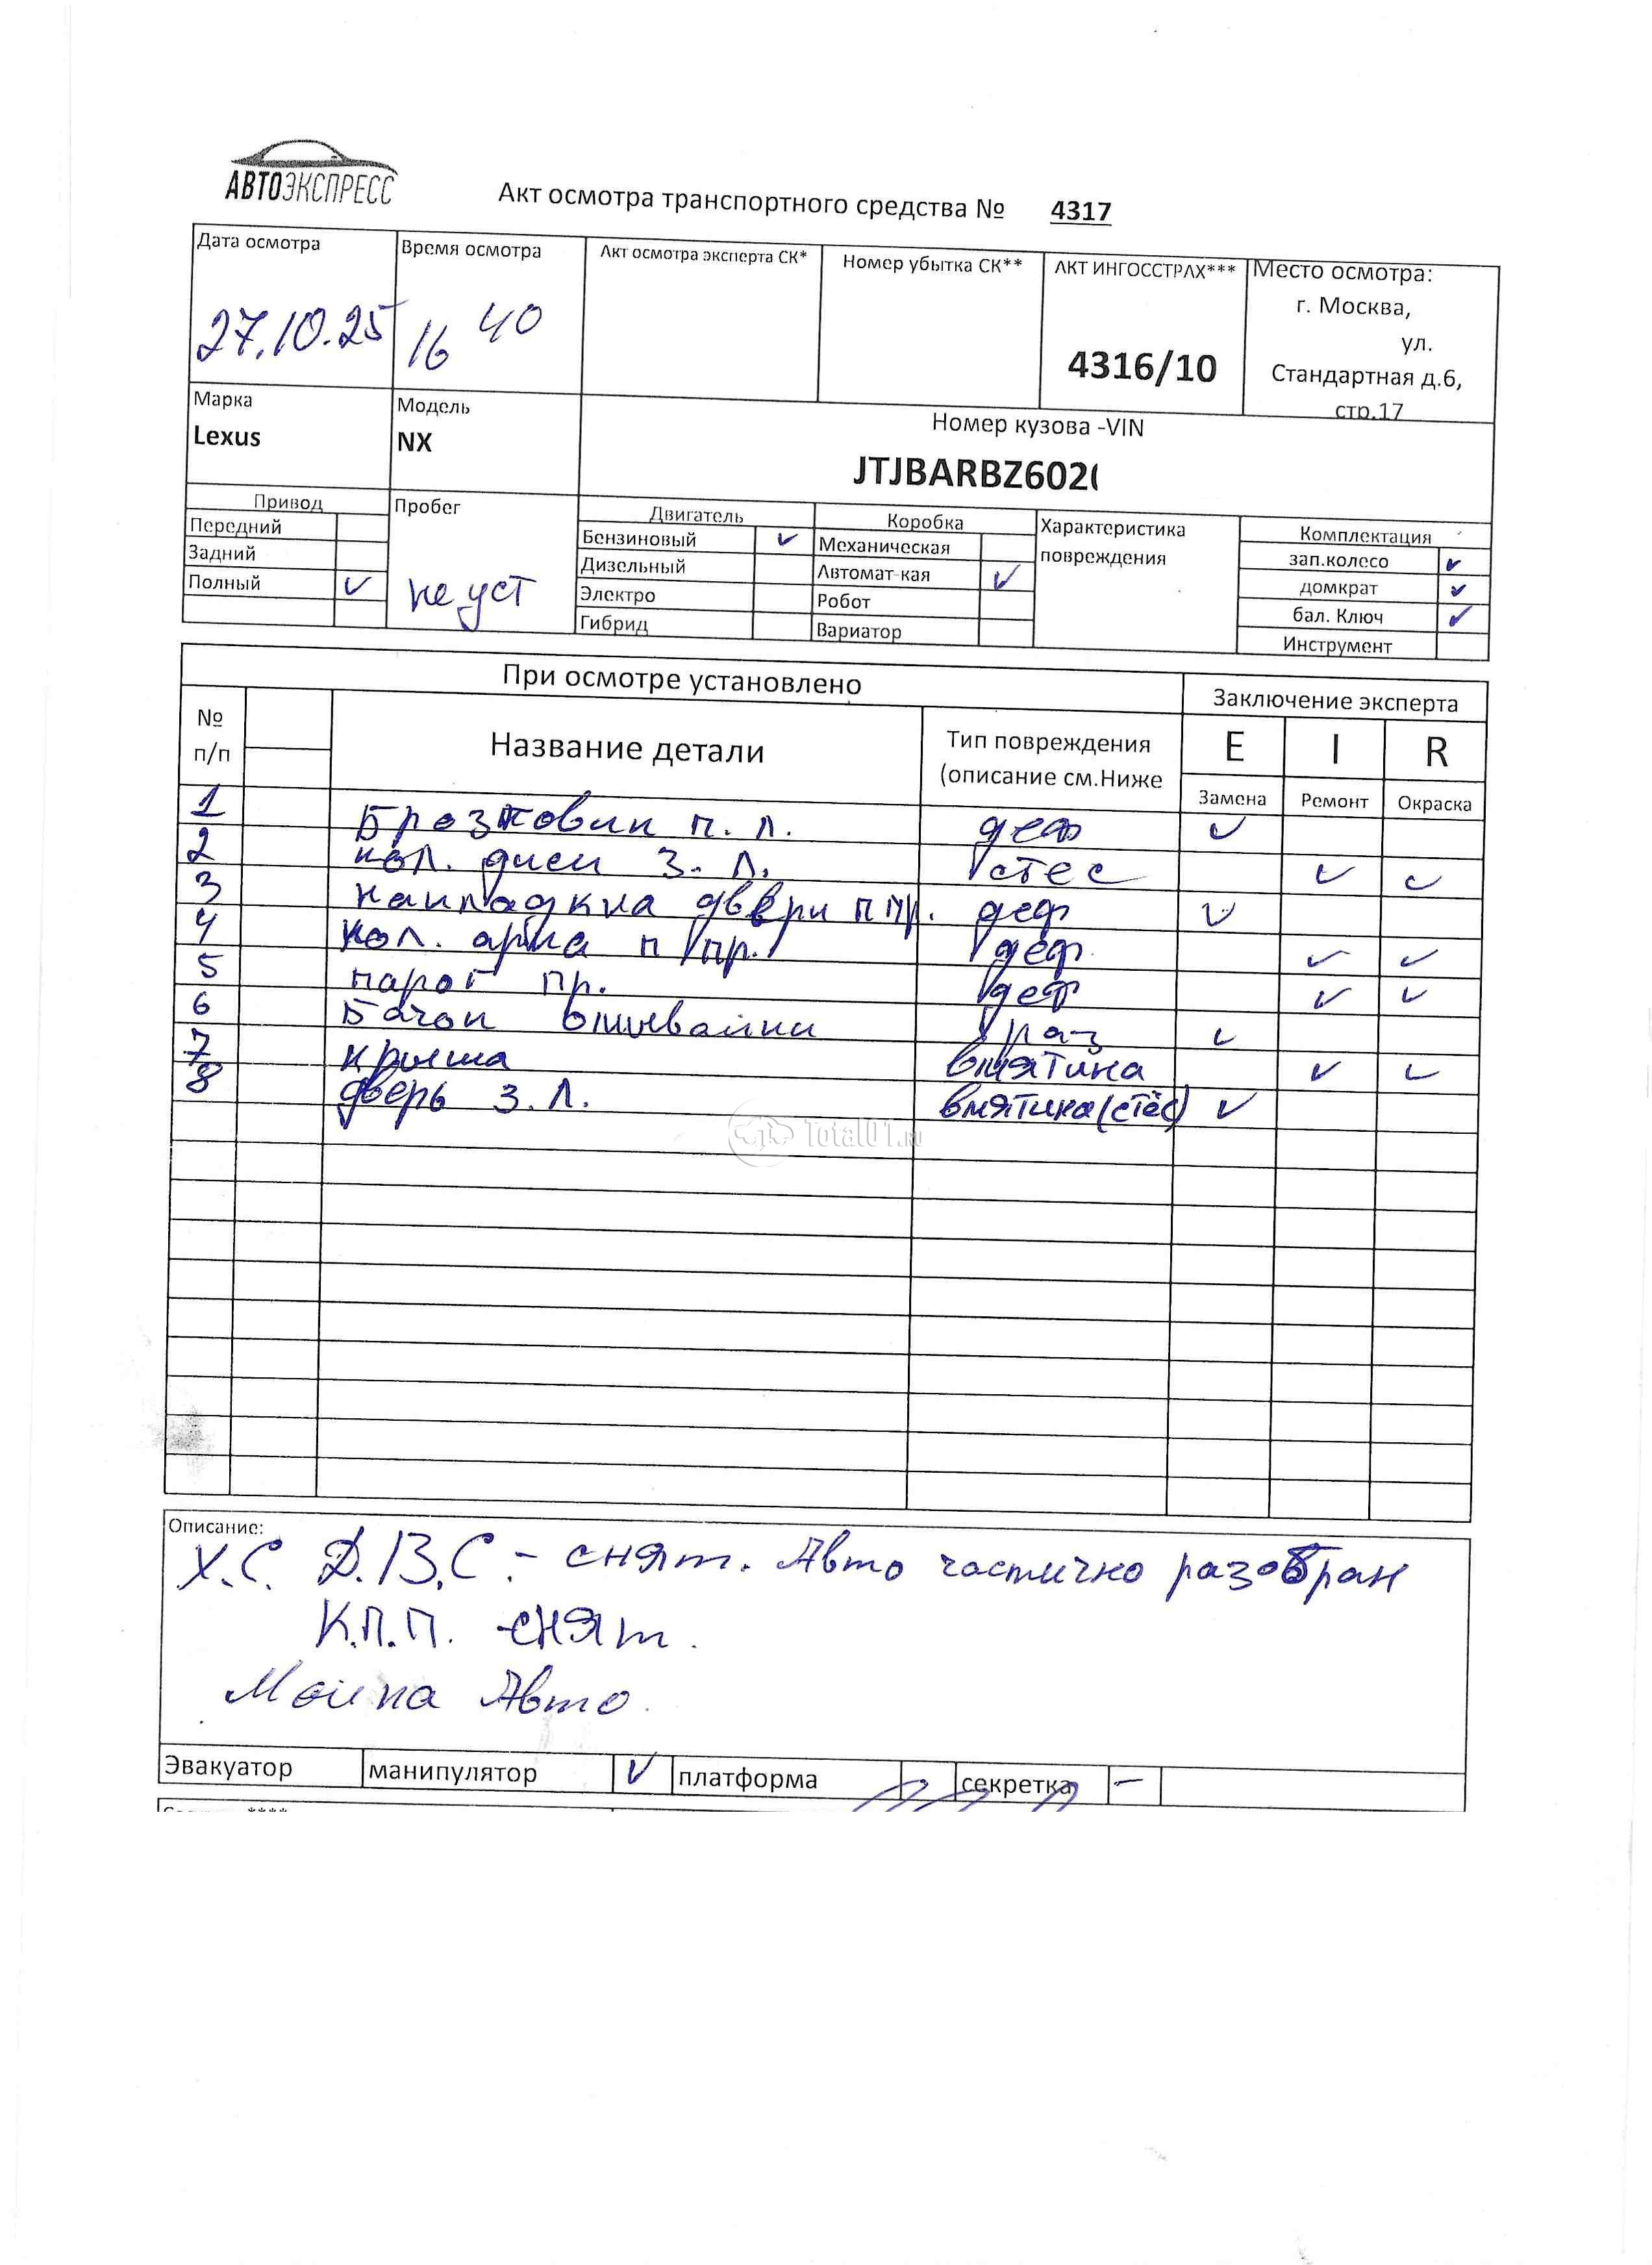 АВТОЭКСПРЕСС
Акт осмотра транспортного средства № 4317
Дата осмотра
27.10.25
Время осмотра
16 40
Акт осмотра эксперта СК*
Номер убытка СК**
АКТ ИНГОССТРАХ***
4316/10
Место осмотра:
г. Москва,
ул.
Стандартная д.6,
стр.17
Марка
Lexus
Модель
NX
Номер кузова -VIN
JTJBARBZ602
Привод
Передний
Задний
Полный ✓
Пробег
не уст
Двигатель
Бензиновый ✓
Дизельный
Электро
Гибрид
Коробка
Механическая
Автомат-кая ✓
Робот
Вариатор
Характеристика
повреждения
Комплектация
зап.колесо ✓
домкрат ✓
бал. Ключ ✓
Инструмент
При осмотре установлено
Заключение эксперта
№
п/п
Название детали
Тип повреждения
(описание см.Ниже
E I R
Замена Ремонт Окраска
1 п. л. деф ✓
2 кол. диск З. Л. стес ✓ ✓
3 двери п пр. деф ✓
4 кол. арка п пр. деф ✓ ✓
5 парог пр. деф ✓ ✓
6 Бачок омывайки раз ✓
7 крыша вмятина ✓ ✓
8 дверь З. Л. вмятина (стёс) ✓
Total01.ru
Описание:
Х.С. Д.В.С - снят. Авто частично разобран
К.П.П. - снят.
Мойка Авто.
Эвакуатор манипулятор ✓ платформа секретка –